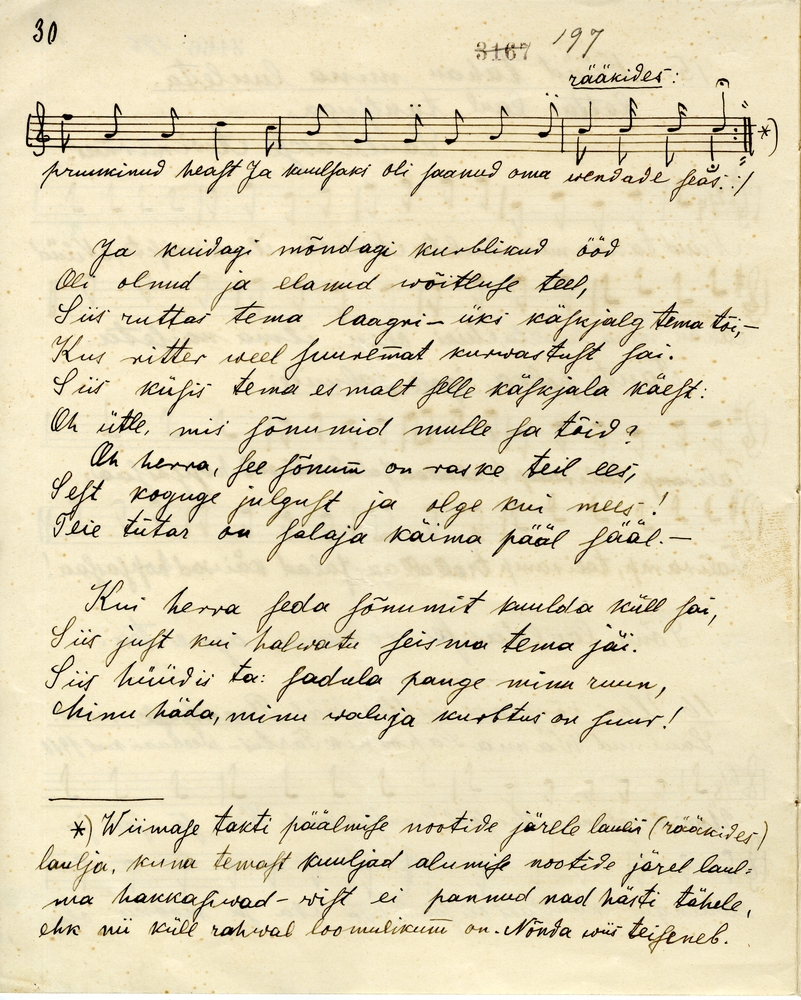 30
3167 197
rääkides:
*)
pruukinud heast Ja kuulsaks oli saanud oma wendade seas. :/
Ja kuidagi mõndagi kurblikud ööd
Oli olnud ja elanud wõitluse teel,
Siis ruttas tema laagri - üks käskjalg tema tõi, -
Kus ritter weel suuremat kurwastust sai.
Siis küsis tema esmalt selle käskjala käest:
Oh ütle, mis sõnumid mulle sa tõid?
Oh herra, see sõnum on raske teil ees,
Sest koguge julgust ja olge kui mees!
Teie tütar on salaja käima pääl sääl. -
Kui herra seda sõnumit kuulda küll sai,
Siis just kui halwatu seisma tema jäi.
Siis hüüdis ta: sadula pange minu ruun,
Minu häda, minu waluja kurbtus on suur!
*) Wiimase takti päälmise nootide järele laulis (rääkides)
laulja, kuna temast kuuljad alumise nootide järel laul-
ma hakkasiwad - wist ei pannud nad hästi tähele,
ehk nii küll rahwal loomulikum on. Nõnda wiis teiseneb.